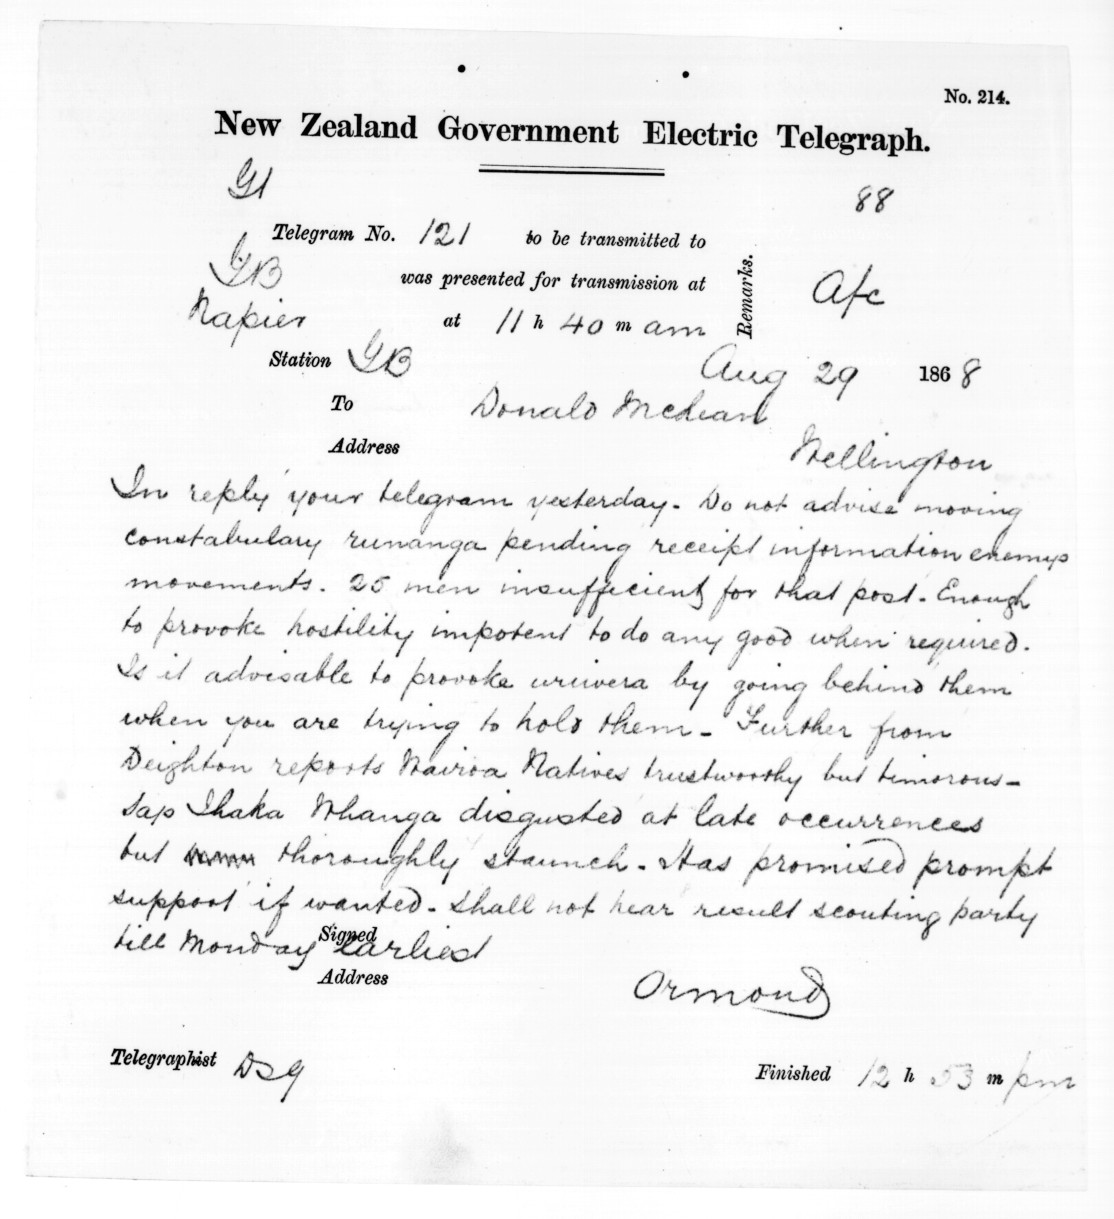 No. 214.
New Zealand Government Electric Telegraph.
G1
88
Telegram No. 121 to be transmitted to
GB
was presented for transmission at
Remarks.
Afc
Napier
at 11 h 40 m am
Station GB
Aug 29 1868
To Donald McLean
Address
Wellington
In reply your telegram yesterday. Do not advise moving
constabulary runanga pending receipt information enemys
movements. 25 men insufficient for that post. Enough
to provoke hostility impotent to do any good when required.
Is it advisable to provoke uriwera by going behind them
when you are trying to hold them - Further from
Deighton reports Wairoa Natives trustworthy but timorous -
says Ihaka Whanga disgusted at late occurrences
but thoroughly staunch. Has promised prompt
support if wanted. Shall not hear result scouting party
till Monday earliest
Signed
Address
Ormond
Telegraphist
Finished 12 h 53 m pm